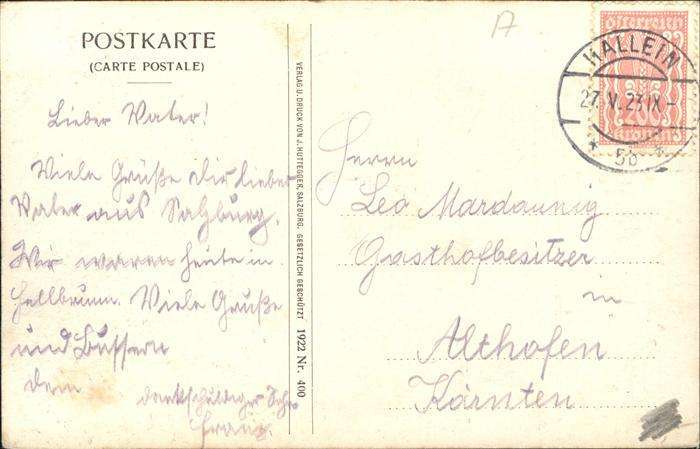 POSTKARTE
(CARTE POSTALE)
Lieber Vater!
Viele Grüße dir lieber
Vater aus Salzburg.
Wir waren heute in
Hellbrunn. Viele Grüße
und Bussern
dein
dankschuldiger Sohn
Franz.
VERLAG U. DRUCK VON J. HUTTEGGER, SALZBURG. GESETZLICH GESCHÜTZT 1922 Nr. 400
A
österreich
200
HALLEIN
27.V.23.IX-
* 5b *
Herrn
Leo Mardaunig
Gasthofbesitzer
in
Althofen
Kärnten